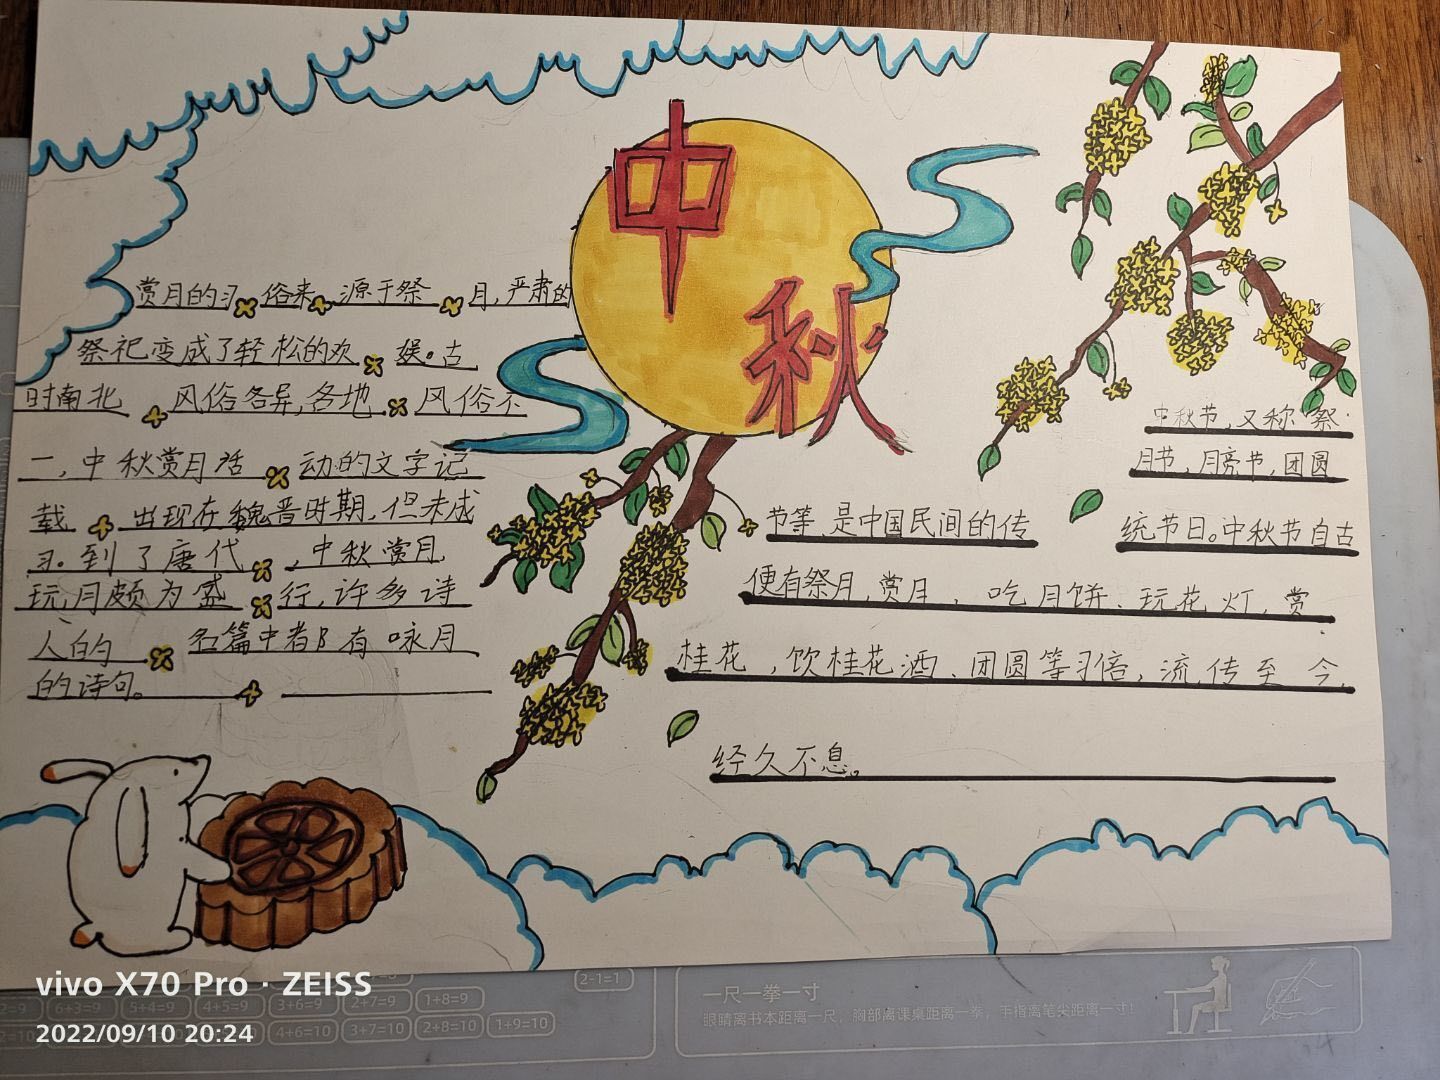 中
秋
赏月的习俗来源于祭月,严肃的
祭祀变成了轻松的欢娱。古
时南北风俗各异,各地风俗不
一,中秋赏月活动的文字记
载出现在魏晋时期,但未成
习。到了唐代,中秋赏月
玩月颇为盛行,许多诗
人的名篇中都有咏月
的诗句。
中秋节,又称祭
月节,月亮节,团圆
节等,是中国民间的传统节日。中秋节自古
便有祭月,赏月,吃月饼、玩花灯,赏
桂花,饮桂花酒、团圆等习俗,流传至今,
经久不息。
vivo X70 Pro · ZEISS
2022/09/10 20:24
2-1=1
6+3=9 5+4=9 4+5=9 3+6=9 2+7=9 1+8=9
4+6=10 3+7=10 2+8=10 1+9=10
一尺一拳一寸
眼睛离书本距离一尺,胸部离课桌距离一拳,手指离笔尖距离一寸!